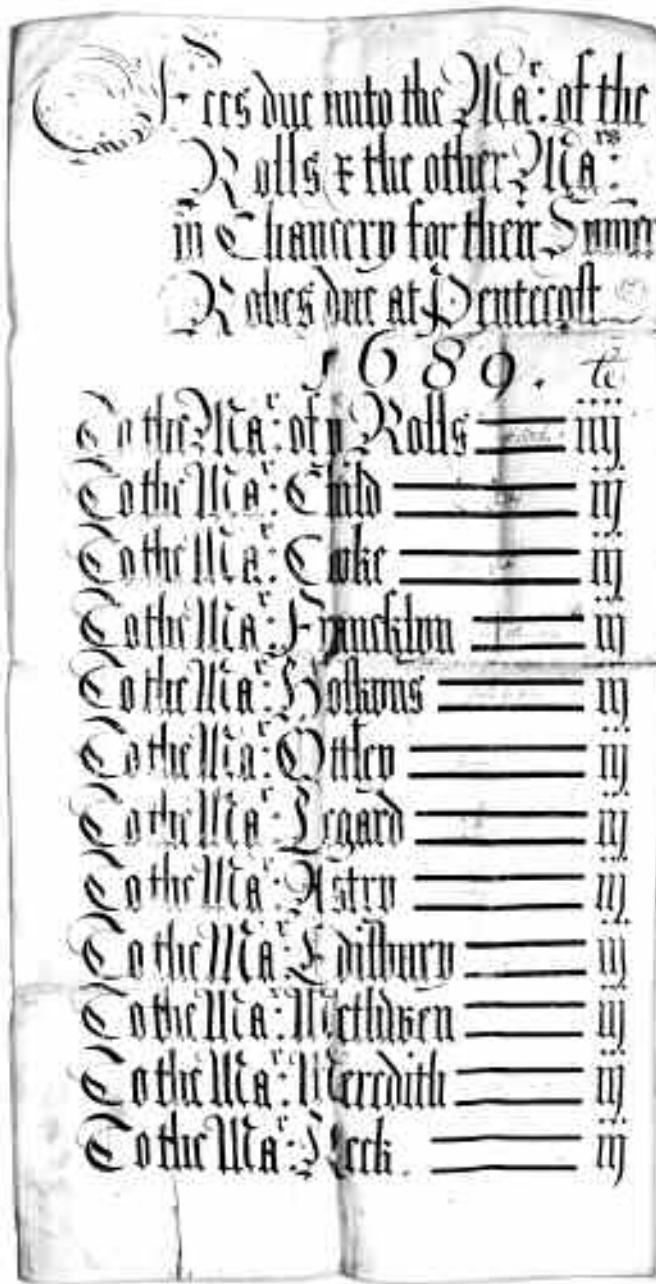 Fees due unto the Ma:r of the
Rolls & the other Ma:rs
in Chancery for their Sumer
Robes due at Pentecost
1689.
To the Ma:r of y Rolls iiij
To the Ma:r Child iij
To the Ma:r Coke iij
To the Ma:r Francklyn iij
To the Ma:r Hoskyns iij
To the Ma:r Ottley iij
To the Ma:r Legard iij
To the Ma:r Astry iij
To the Ma:r Edisbury iij
To the Ma:r Methwen iij
To the Ma:r Meredith iij
To the Ma:r Keck. iij